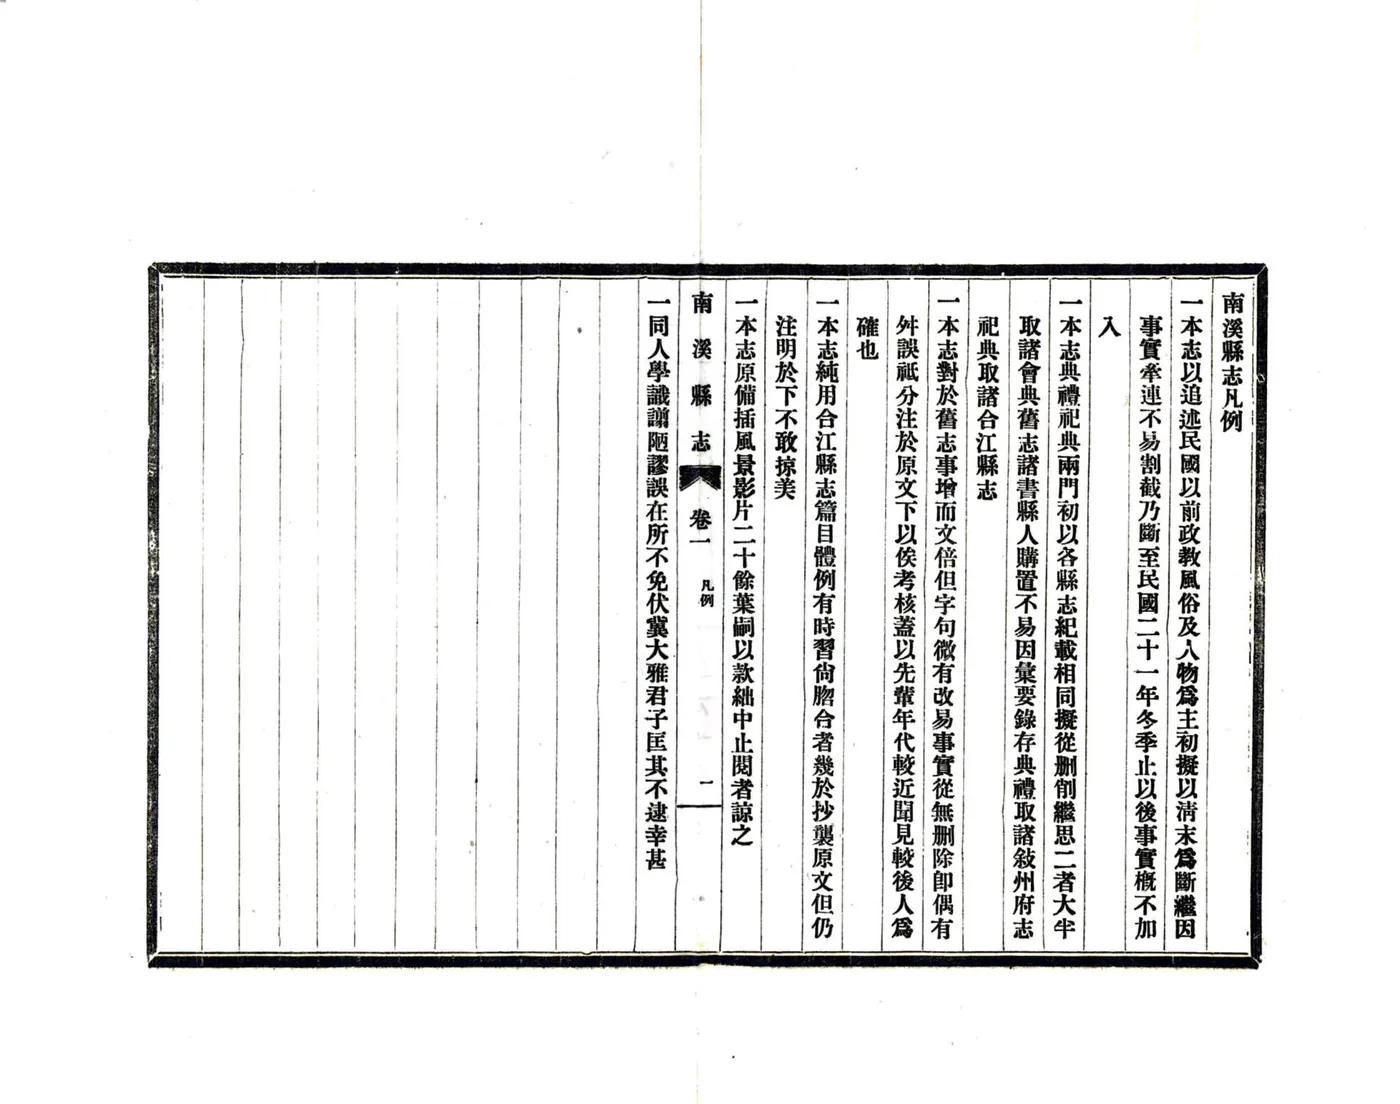 南溪縣志凡例
一本志以追述民國以前政教風俗及人物爲主初擬以清末爲斷繼因
事實牽連不易割截乃斷至民國二十一年冬季止以後事實槪不加
入
一本志典禮祀典兩門初以各縣志紀載相同擬從删削繼思二者大半
取諸會典舊志諸書縣人購置不易因彙要錄存典禮取諸敍州府志
祀典取諸合江縣志
一本志對於舊志事增而文倍但字句微有改易事實從無删除卽偶有
舛誤祇分注於原文下以俟考核蓋以先輩年代較近聞見較後人爲
確也
一本志純用合江縣志篇目體例有時習尙脗合者幾於抄襲原文但仍
注明於下不敢掠美
一本志原備插風景影片二十餘葉嗣以款絀中止閱者諒之
南溪縣志 卷一 凡例 一
一同人學識謭陋謬誤在所不免伏冀大雅君子匡其不逮幸甚